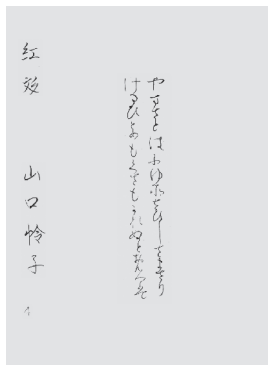 やまさとはふゆそさひしさまさり
けるひとめもくさもかれぬとおもへは
紅 山口怜子